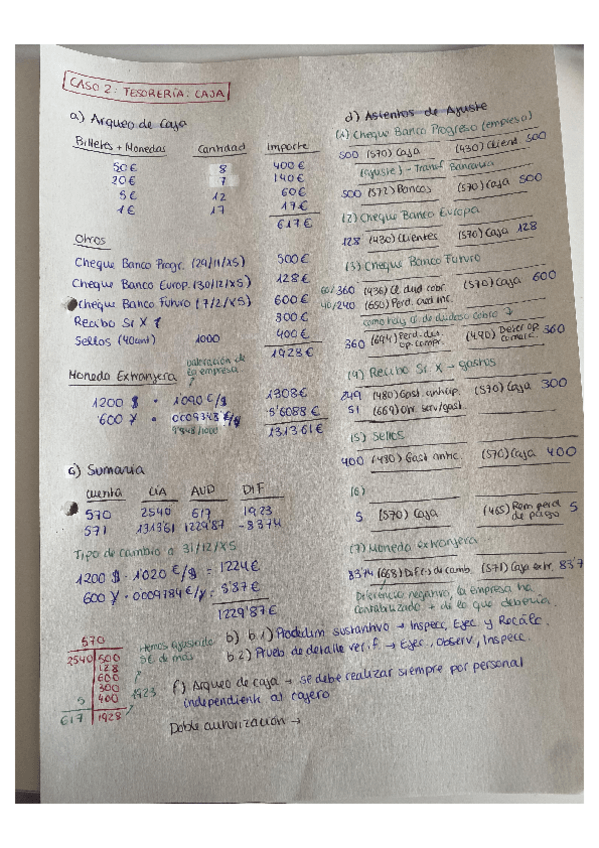 CASO 2: TESORERÍA: CAJA
a) Arqueo de Caja
Billetes + Monedas Cantidad Importe
50€ 8 400€
20€ 7 140€
5€ 12 60€
1€ 17 17€
617€
Otros
Cheque Banco Progr. (29/11/X5) 500€
Cheque Banco Europ. (30/12/X5) 128€
Cheque Banco Futuro (7/2/X5) 600€
Recibo Sr X 300€
Sellos (40cent) 1000 400€
1928€
Moneda Extranjera valoración de la empresa
1200 $ · 1'090 €/$ 1308€
600 ¥ · 0'009348 €/¥ 5'6088€
1313'61€
c) Sumaria
Cuenta CIA AUD DIF
570 2540 617 1923
571 1313'61 1229'87 -83'74
Tipo de cambio a 31/12/X5
1200 $ · 1'020 €/$ = 1224€
600 ¥ · 0'009784 €/¥ = 5'87€
1229'87€
570
2540 500
128
600
300
5 400
617 1928
Hemos ajustado 5€ de más
1923
d) Asientos de Ajuste
(1) Cheque Banco Progreso (empresa)
500 (570) Caja (430) Client 500
(ajuste) - Transf Bancaria
500 (572) Bancos (570) Caja 500
(2) Cheque Banco Europa
128 (430) Clientes (570) Caja 128
(3) Cheque Banco Futuro
60% 360 (436) Cl. dud cobr. (570) Caja 600
40% 240 (650) Perd. cred inc.
como hay cl. de dudoso cobro ↓
360 (694) Perd. det. op. comer. (490) Deter op. comerc. 360
(4) Recibo Sr X → gastos
249 (480) Gast. anticip. (570) Caja 300
51 (669) Otr. serv/gast.
(5) Sellos
400 (480) Gast antic. (570) Caja 400
(6)
5 (570) Caja (465) Rem pend de pago 5
(7) Moneda extranjera
83'74 (668) Dif (-) de camb. (571) Caja extr. 83'7
Diferencia negativa, la empresa ha contabilizado + de lo que debería.
b) b.1) Procedim sustantivo → Inspecc, Ejec. y Recálc.
b.2) Prueba de detalle verif. → Ejec., Observ., Inspecc.
f) Arqueo de caja → se debe realizar siempre por personal
independiente al cajero
Doble autorización →